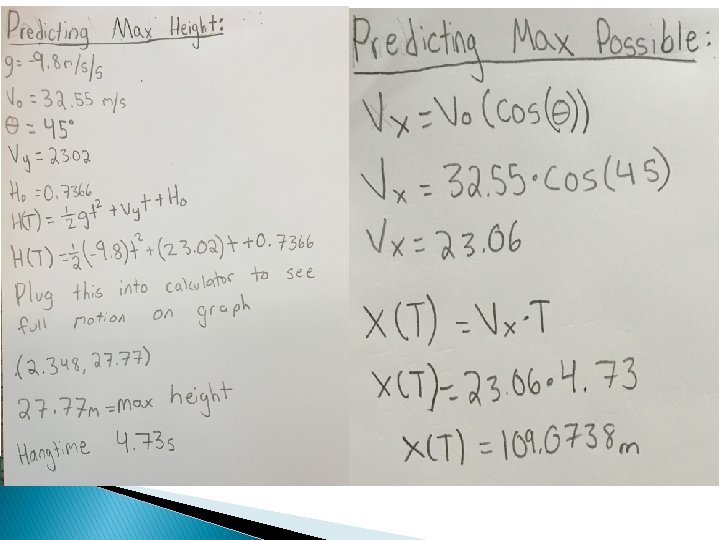 Predicting Max Height:
g=-9.8m/s/s
V₀=32.55 m/s
θ=45°
Vy=2302
H₀=0.7366
H(T)=½gt²+Vyt+H₀
H(T)=½(-9.8)t²+(23.02)t+0.7366
Plug this into calculator to see
full motion on graph
(2.348, 27.77)
27.77m=max height
Hangtime 4.73s
Predicting Max Possible:
Vx=V₀(cos(θ))
Vx=32.55·cos(45)
Vx=23.06
X(T)=Vx·T
X(T)=23.06·4.73
X(T)=109.0738m